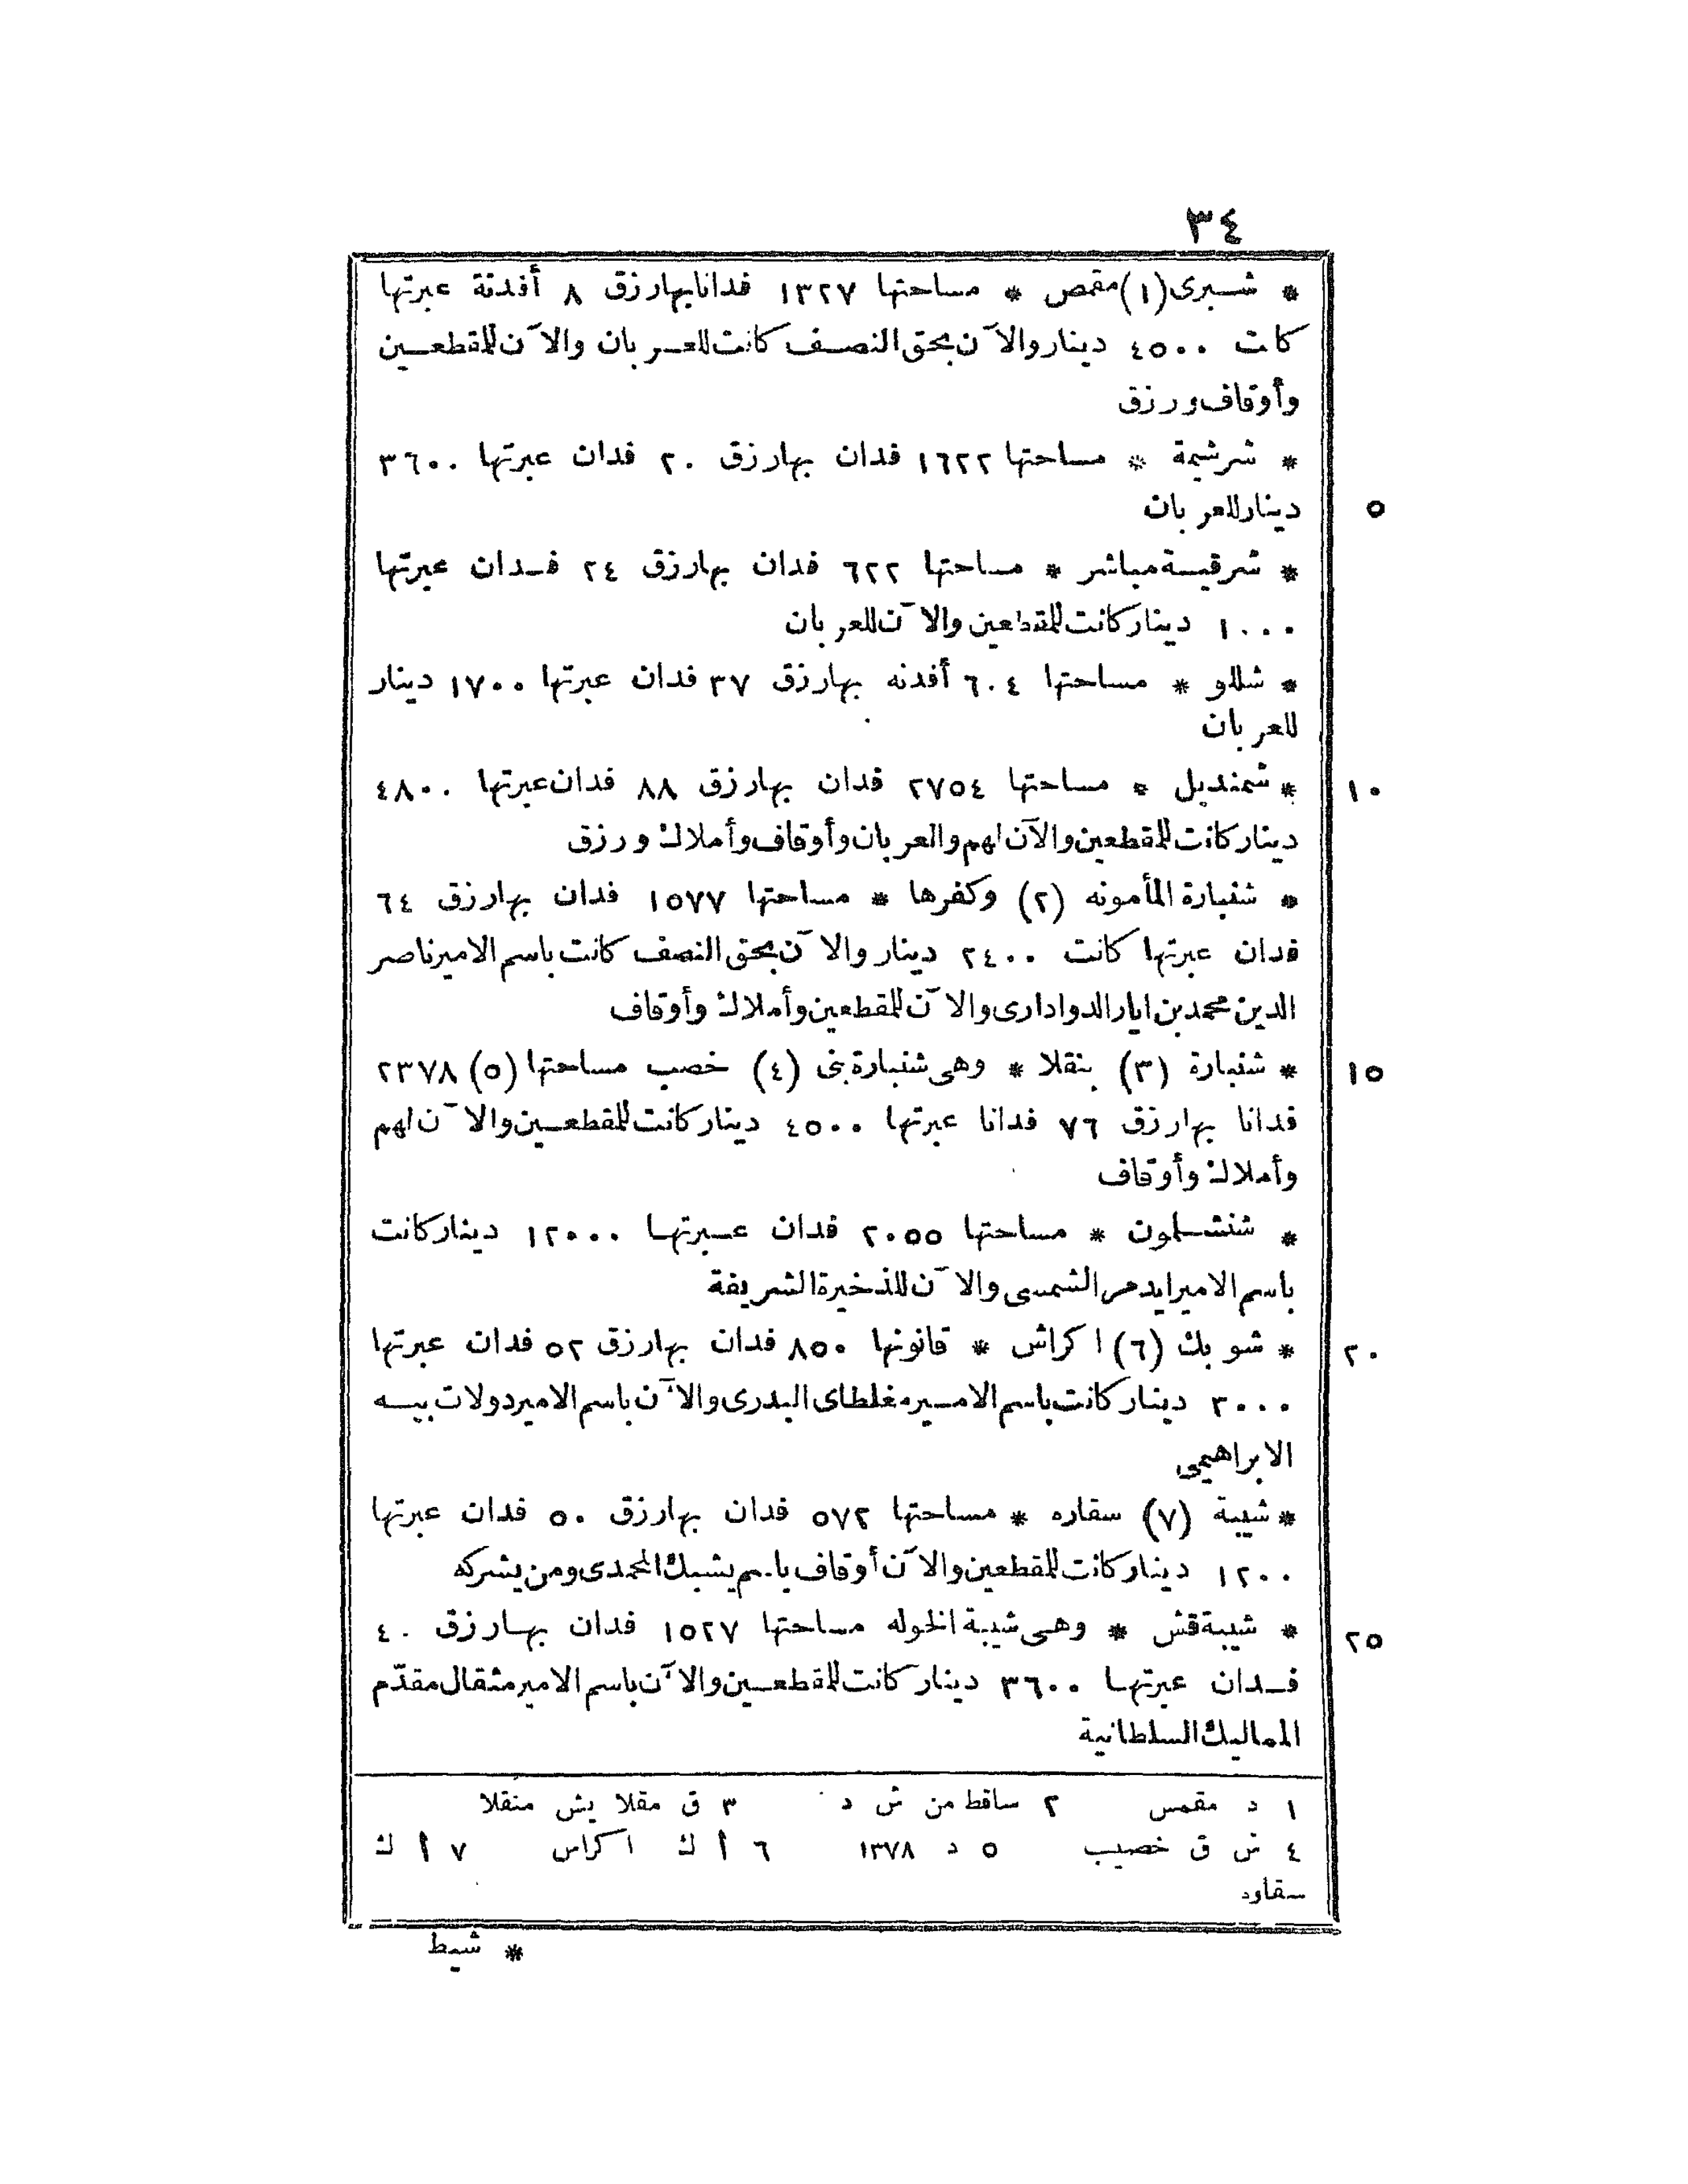 ٣٤
* شبرى (١) مقمص * مساحتها ١٣٢٧ فدانا بها رزق ٨ أفدنة عبرتها
كات ٤٥٠٠ دينار والآن بحق النصف كانت للعربان والآن للمقطعين
وأوقاف ورزق
* شرشيمة * مساحتها ١٦٢٢ فدان بها رزق ٢٠ فدان عبرتها ٣٦٠٠
دينار للعربان
٥
* شرقية مباشر * مساحتها ٦٢٢ فدان بها رزق ٢٤ فدان عبرتها
١٠٠٠ دينار كانت للمقطعين والآن للعربان
* شللو * مساحتها ٦٠٤ أفدنه بها رزق ٣٧ فدان عبرتها ١٧٠٠ دينار
للعربان
* شمنديل * مساحتها ٢٧٥٤ فدان بها رزق ٨٨ فدان عبرتها ٤٨٠٠
١٠
دينار كانت للمقطعين والآن لهم والعربان وأوقاف وأملاك ورزق
* شنبارة المأمونه (٢) وكفرها * مساحتها ١٥٧٧ فدان بها رزق ٦٤
فدان عبرتها كانت ٢٤٠٠ دينار والآن بحق النصف كانت باسم الامير ناصر
الدين محمد بن ايار الدوادارى والآن للمقطعين وأملاك وأوقاف
* شنبارة (٣) بنقلا * وهى شنبارة بنى (٤) خصب مساحتها (٥) ٢٣٧٨
١٥
فدانا بها رزق ٧٦ فدانا عبرتها ٤٥٠٠ دينار كانت للمقطعين والآن لهم
وأملاك وأوقاف
* شنشلمون * مساحتها ٢٠٥٥ فدان عبرتها ١٢٠٠٠ دينار كانت
باسم الامير ايدمر الشمسى والآن للذخيرة الشريفة
* شوبك (٦) اكراش * قانونها ٨٥٠ فدان بها رزق ٥٢ فدان عبرتها
٢٠
٣٠٠٠ دينار كانت باسم الامير مغلطاى البدرى والآن باسم الامير دولات بيه
الابراهيمى
* شيبة (٧) سقاره * مساحتها ٥٧٢ فدان بها رزق ٥٠ فدان عبرتها
١٢٠٠ دينار كانت للمقطعين والآن أوقاف باسم يشبك المحمدى ومن يشركه
* شيبة قش * وهى شيبة الخوله مساحتها ١٥٢٧ فدان بها رزق ٤٠
٢٥
فدان عبرتها ٣٦٠٠ دينار كانت للمقطعين والآن باسم الامير مثقال مقدّم
المماليك السلطانية
١ د مقمس ٢ ساقط من ش د ٣ ق مقلا يش منقلا
٤ ش ق خصيب ٥ د ١٣٧٨ ٦ أ ك اكراس ٧ أ ك
سقاود
* شيط